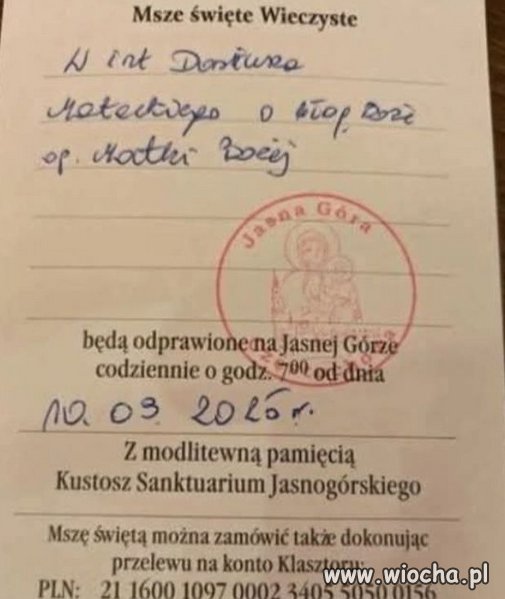 Msze święte Wieczyste
W int Dariusza
Mateckiego o błog. Boże
op. Matki Bożej
Jasna Góra
będą odprawione na Jasnej Górze
codziennie o godz. 7⁰⁰ od dnia
10. 03. 2025 r.
Z modlitewną pamięcią
Kustosz Sanktuarium Jasnogórskiego
Mszę świętą można zamówić także dokonując
przelewu na konto Klasztoru:
PLN: 21 1600 1097 0002 3405 5050 0156
www.wiocha.pl